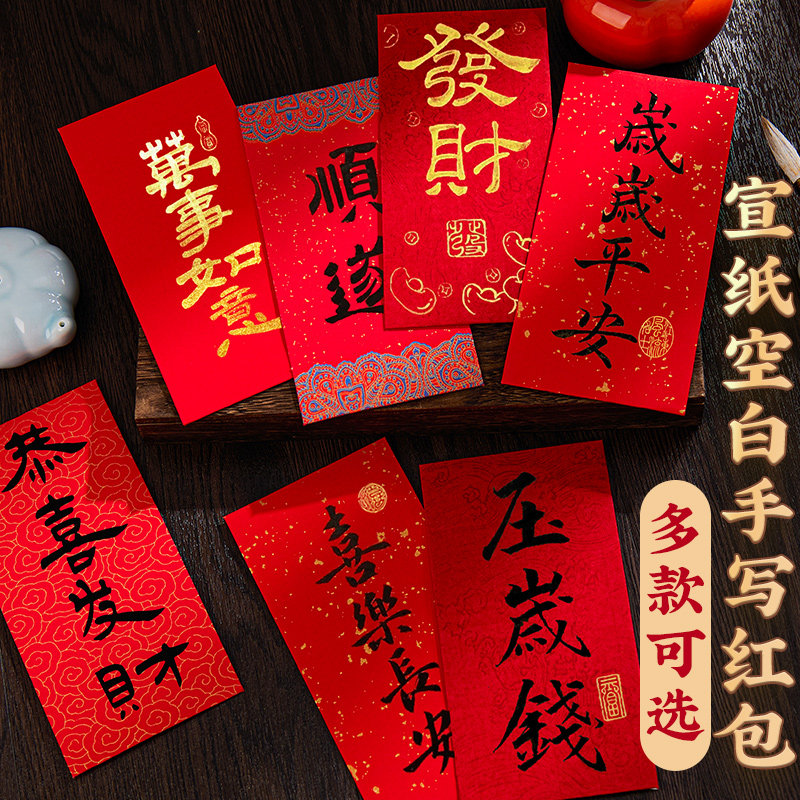 萬事如意
順遂
發財
發
歲歲平安
恭喜发財
喜樂長安
压歲錢
宣纸空白手写红包
多款可选